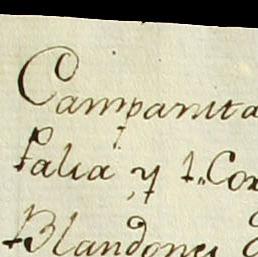 Campanita
falia y t. Cor
Blandony